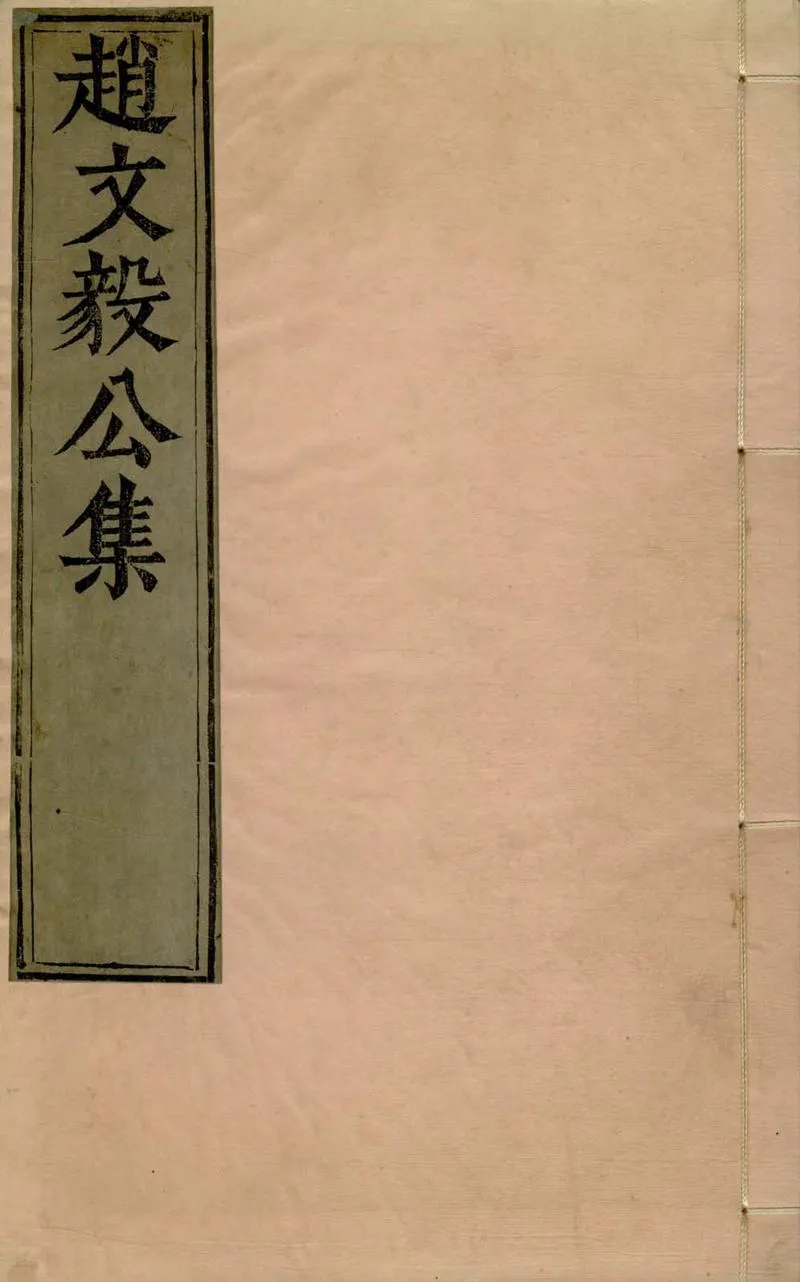 趙文毅公集